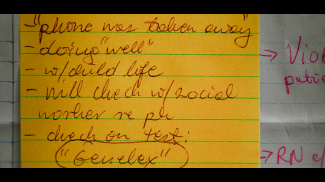 -"phone was taken away"
- doing "well"
- w/child life
- will check w/social
worker re ph
- check on test:
"Genelex"
→ Vio
patie
→RN